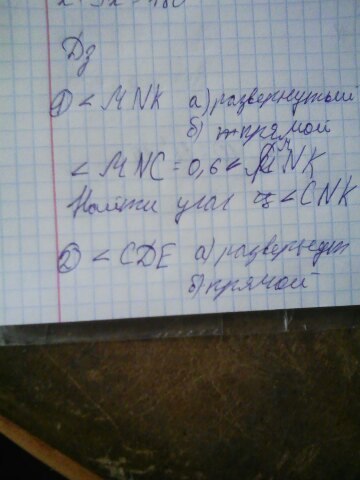 Дз
① < MNK а) развернутый
б) прямой
< MNC = 0,6 < MNK
Найти угол < CNK
② < CDE а) развернут
б) прямой